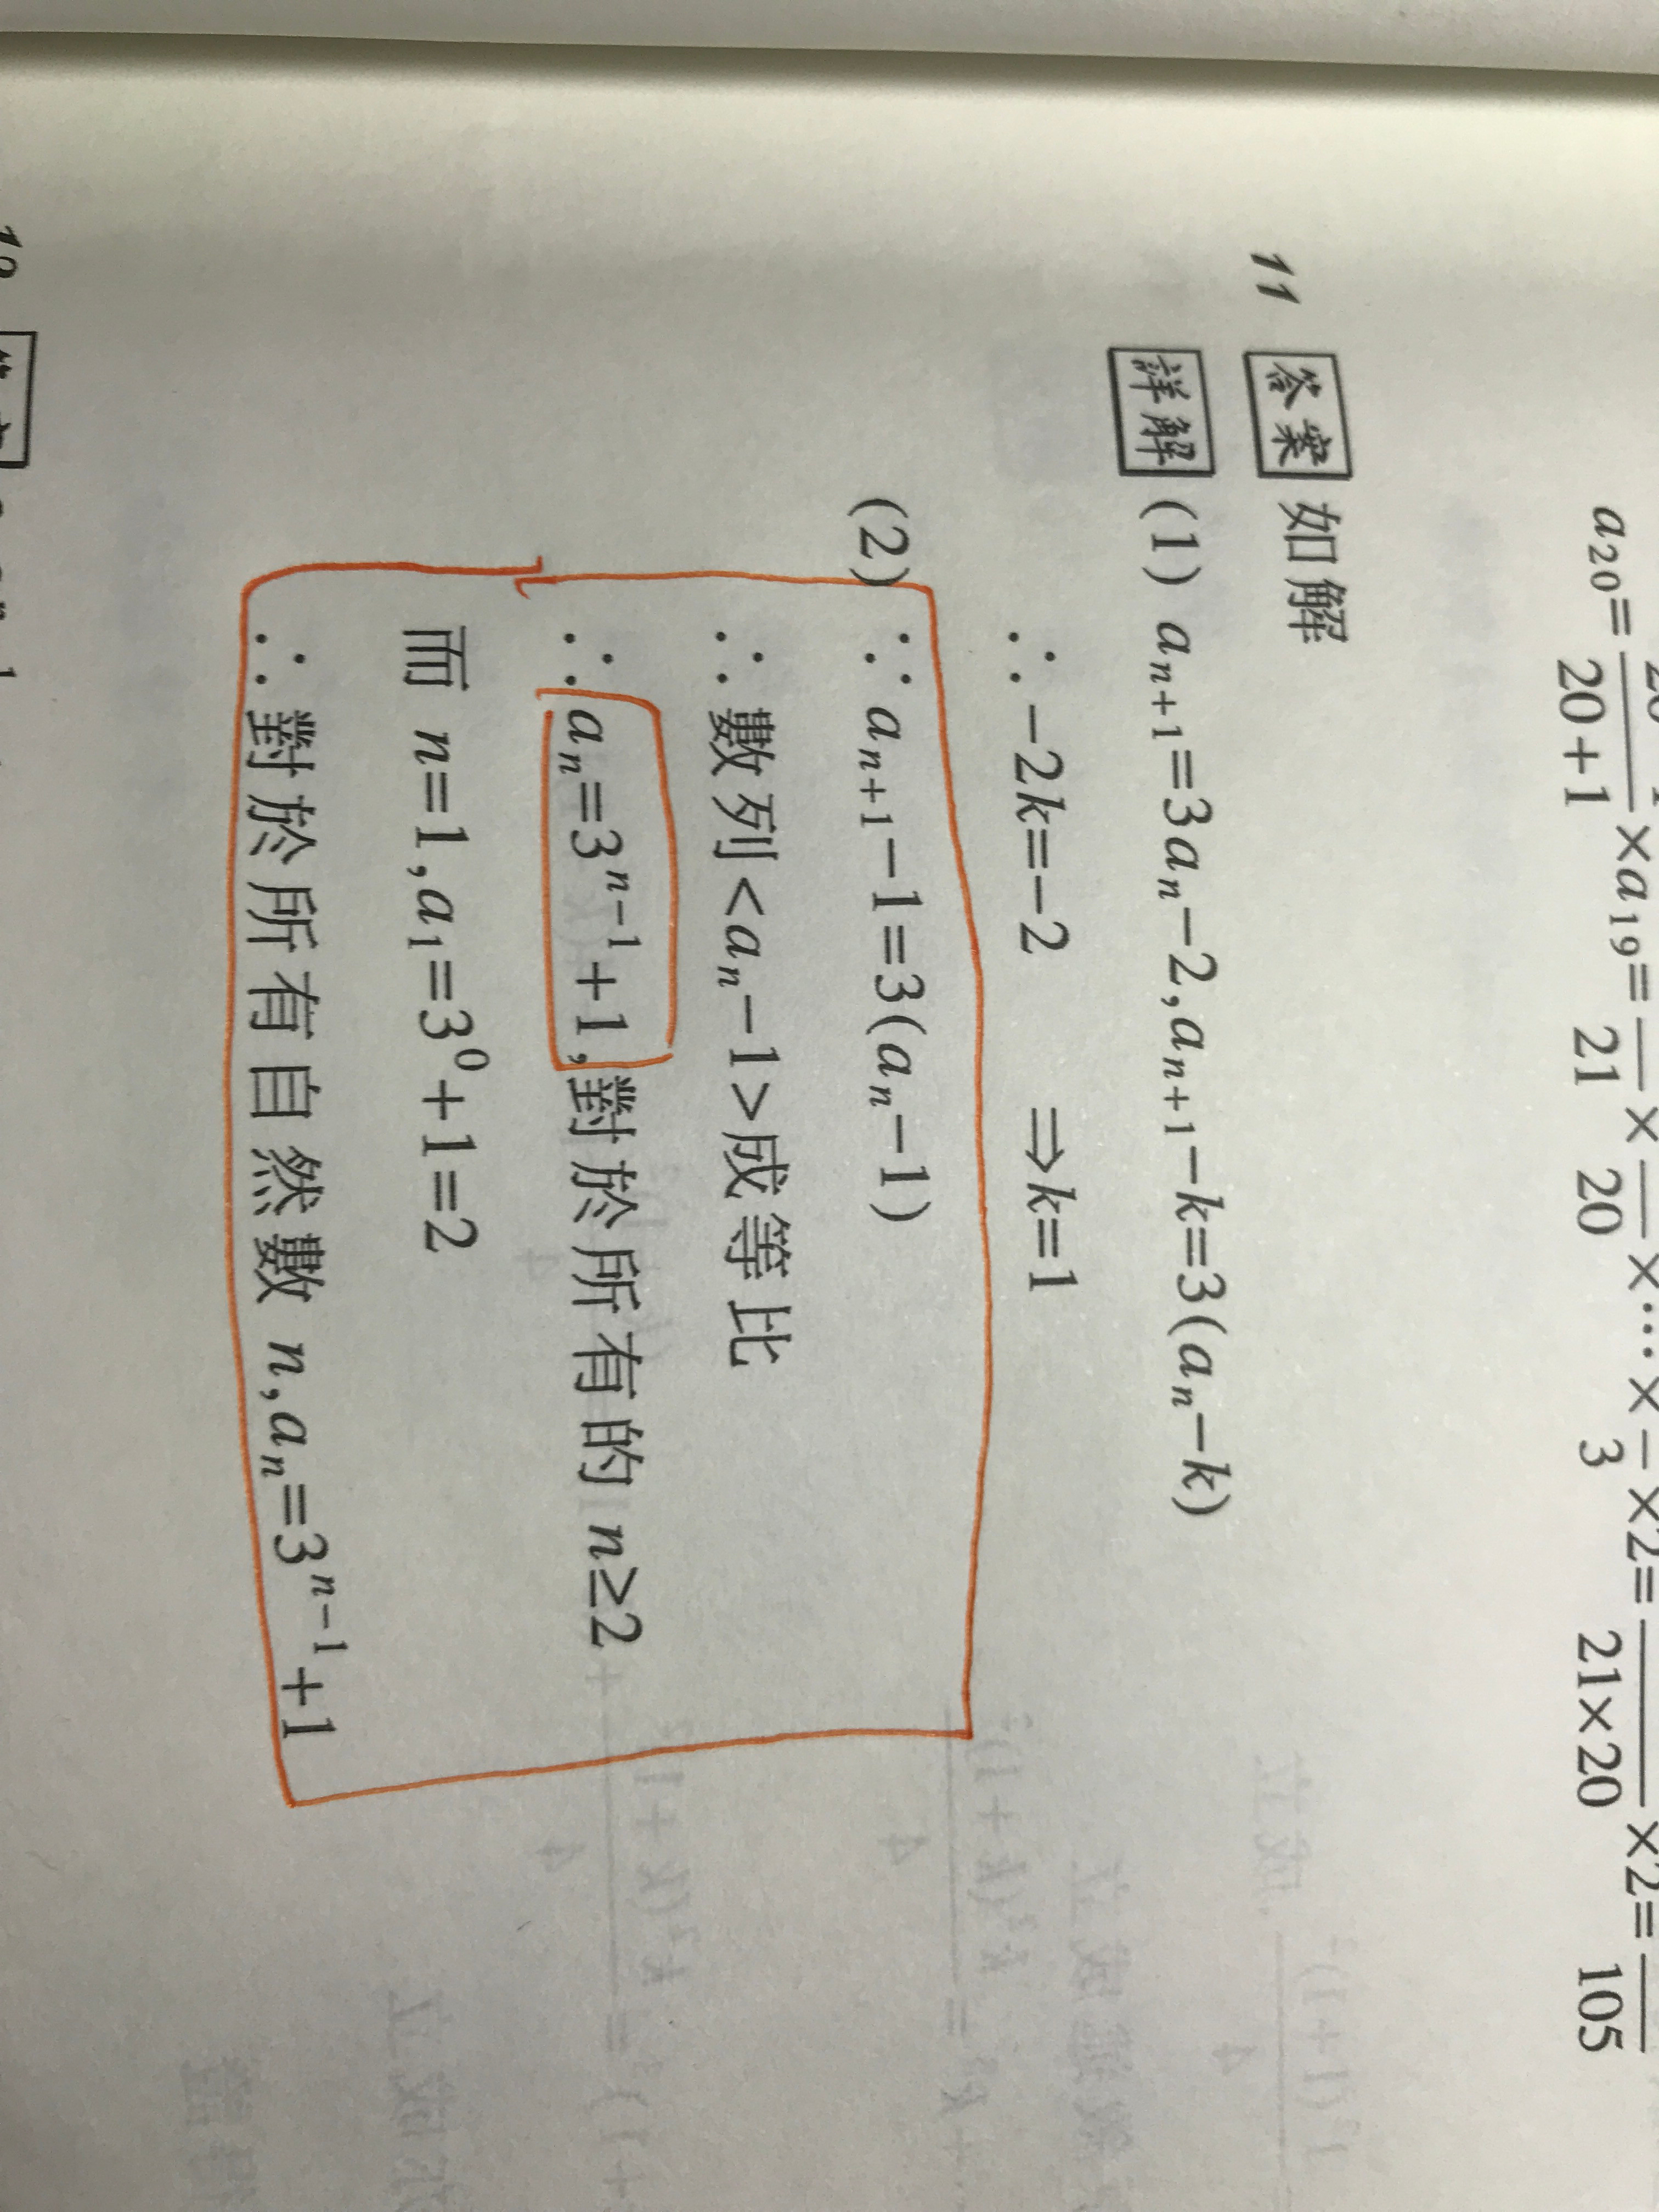 a₂₀=20+1×a₁₉=21×20×…×3×2=21×20×2=105
11 答案 如解
詳解 (1) aₙ₊₁=3aₙ−2,aₙ₊₁−k=3(aₙ−k)
∴−2k=−2 ⇒k=1
(2) ∵aₙ₊₁−1=3(aₙ−1)
∴數列<aₙ−1>成等比
∴aₙ=3ⁿ⁻¹+1,對於所有的 n≥2
而 n=1,a₁=3⁰+1=2
∴對於所有自然數 n,aₙ=3ⁿ⁻¹+1